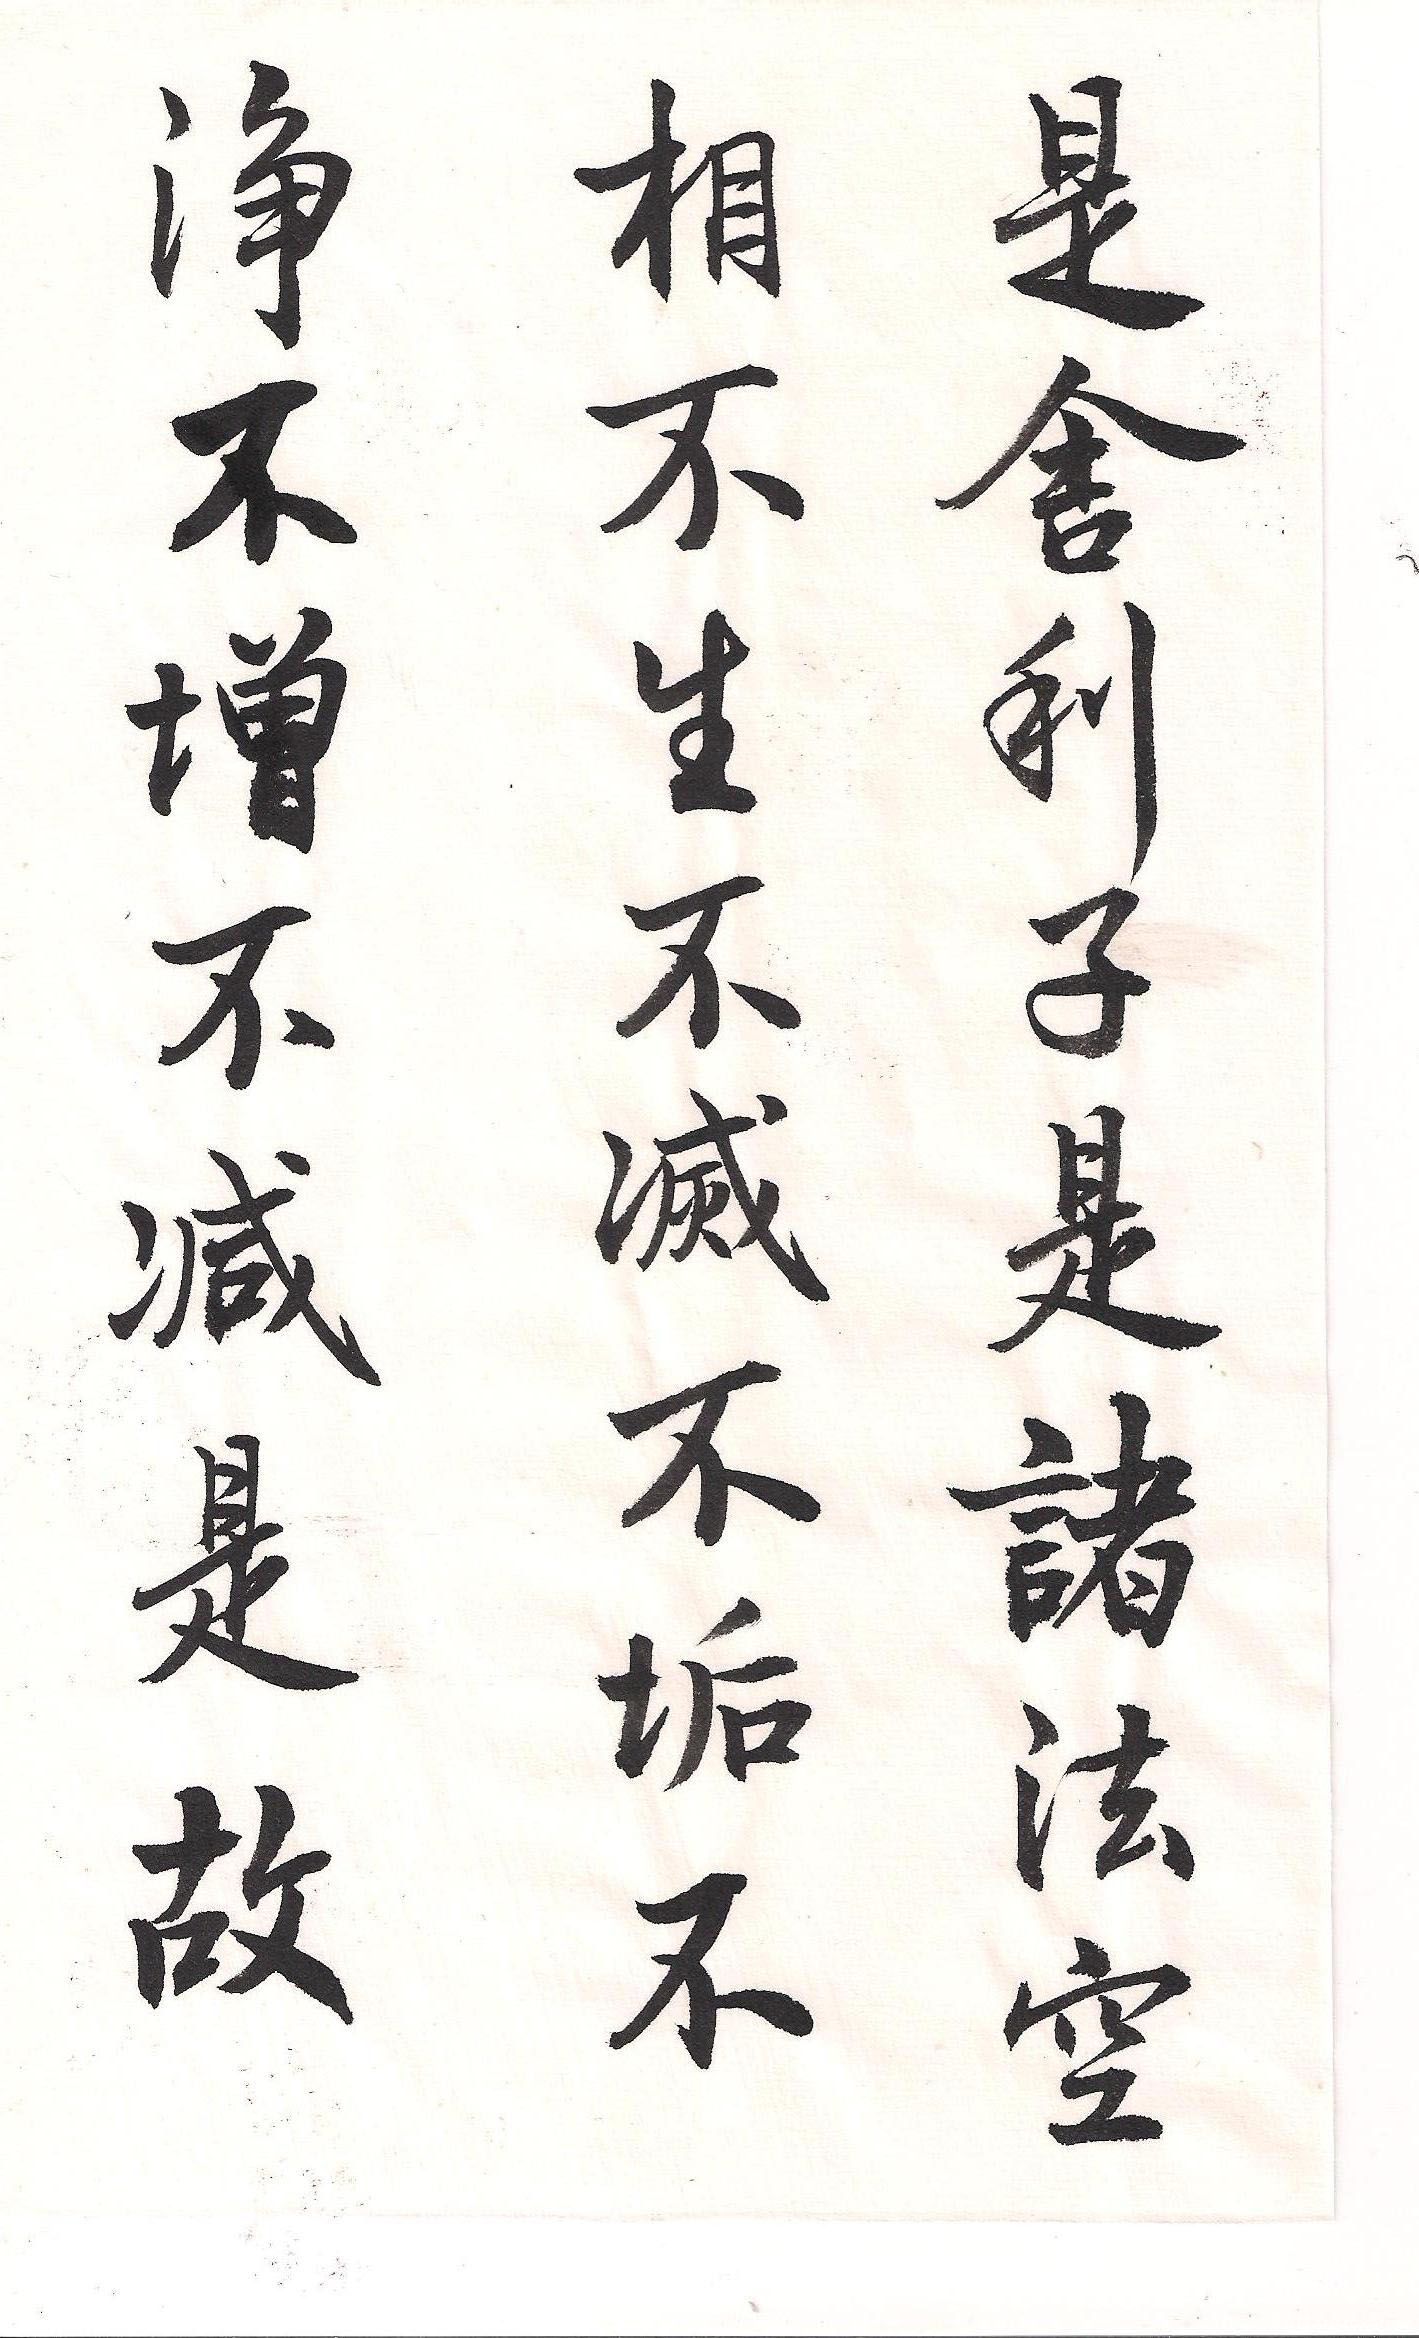 是舍利子是諸法空
相不生不滅不垢不
淨不增不減是故